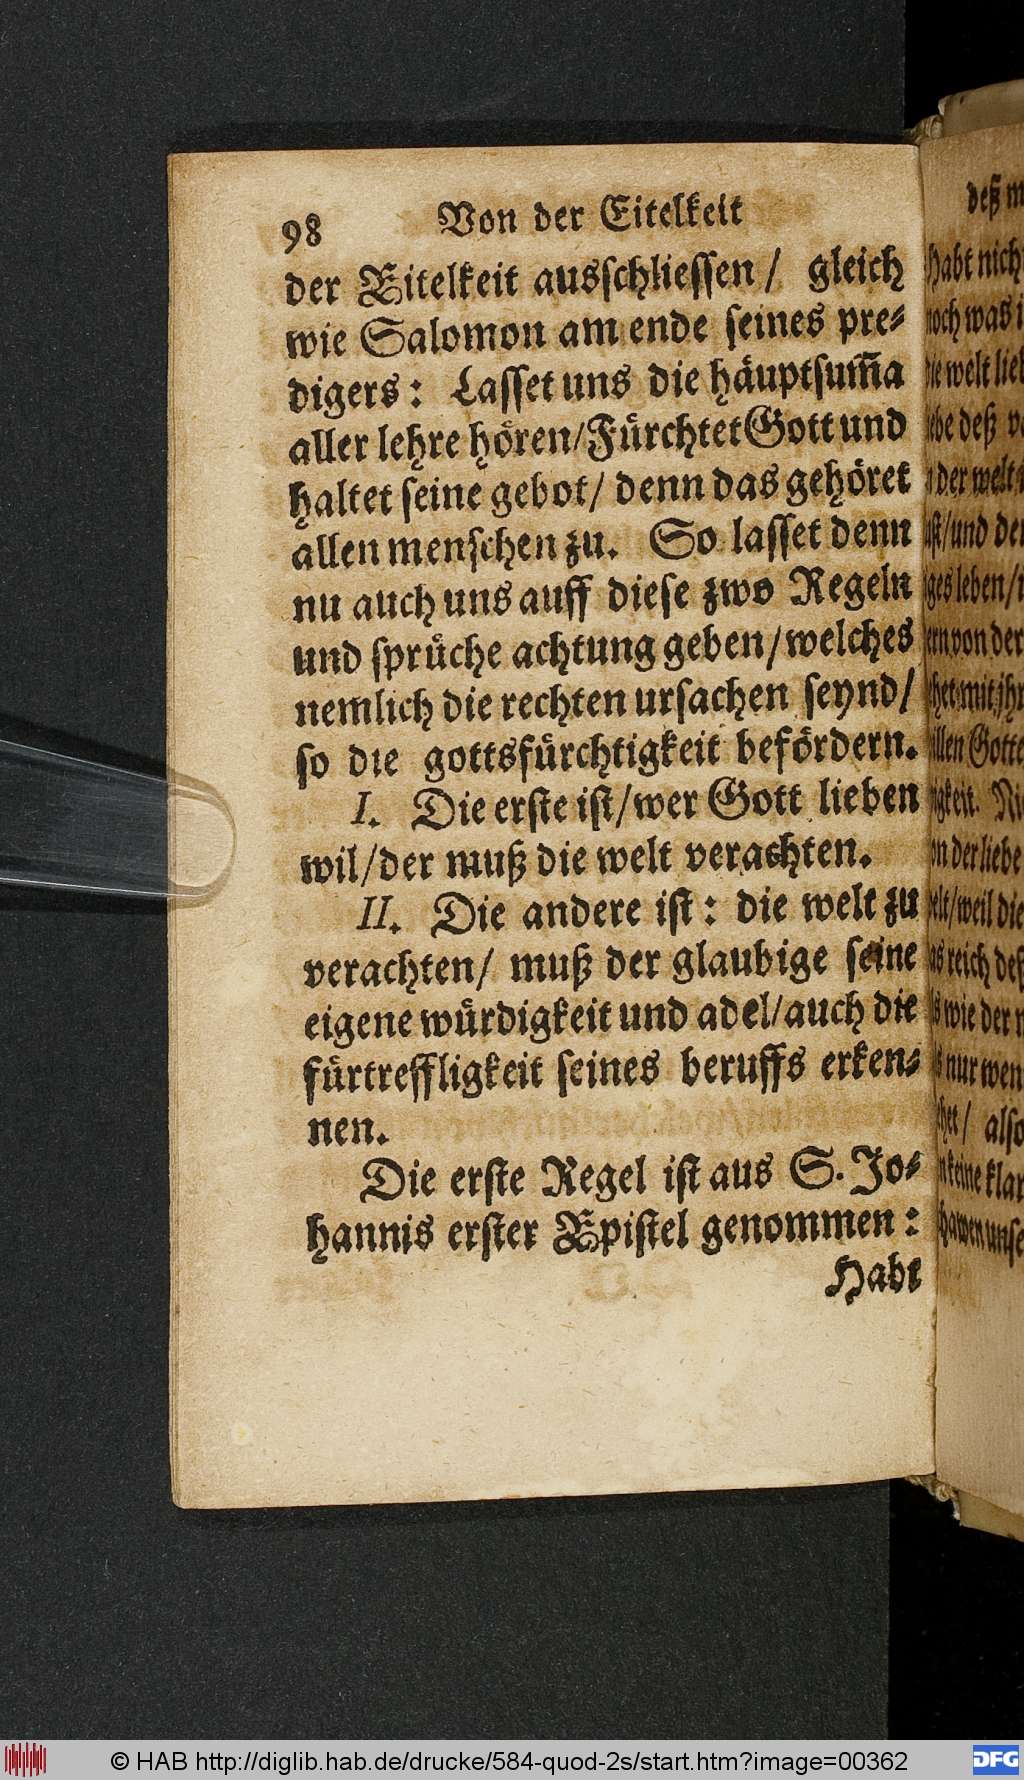 98 Von der Eitelkeit
der Eitelkeit ausschliessen / gleich
wie Salomon am ende seines pre⸗
digers: Lasset uns die häuptsum̃a
aller lehre hören/Fürchtet Gott und
haltet seine gebot/ denn das gehöret
allen menschen zu. So lasset denn
nu auch uns auff diese zwo Regeln
und sprüche achtung geben/welches
nemlich die rechten ursachen seynd/
so die gottsfürchtigkeit befördern.
I. Die erste ist/wer Gott lieben
wil/der muß die welt verachten.
II. Die andere ist: die welt zu
verachten/ muß der glaubige seine
eigene würdigkeit und adel/auch die
fürtreffligkeit seines beruffs erken⸗
nen.
Die erste Regel ist aus S. Jo⸗
hannis erster Epistel genommen:
Habt
deß
Habt nich
noch was
die welt lieb
deß
der welt
/und
leben/
von der
mit jhr
Gotte
der liebe
/weil die
reich
wie der
nur wen
/ also
keine klar
© HAB http://diglib.hab.de/drucke/584-quod-2s/start.htm?image=00362
DFG